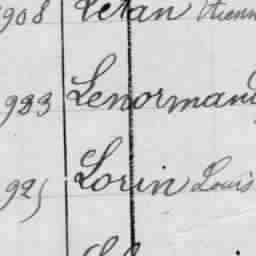 908 Leran Etienn
983 Lenormand
925 Lorin Louis